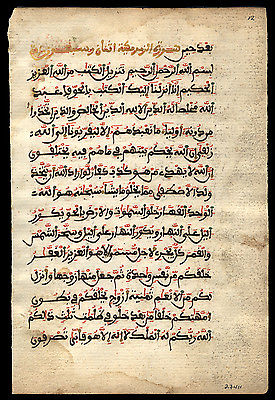 بعد حين سورة الزمر مكية اثنان وسبعون
بسم الله الرحمن الرحيم تنزيل الكتب من الله العزيز
الحكيم انا انزلنا اليك الكتب بالحق فاعبد
الله مخلصا له الدين الا لله الدين الخالص والذين اتخذوا
من دونه اولياء ما نعبدهم الا ليقربونا الى الله
زلفى ان الله يحكم بينهم في ما هم فيه يختلفون
ان الله لا يهدي من هو كذب كفار لو اراد الله ان يتخذ
ولدا لاصطفى مما يخلق ما يشاء سبحنه هو الله
الوحد القهار خلق السموت والارض بالحق يكور
اليل على النهار ويكور النهار على اليل وسخر الشمس
والقمر كل يجري لاجل مسمى الا هو العزيز الغفر
خلقكم من نفس وحدة ثم جعل منها زوجها وانزل
لكم من الانعم ثمنية ازوج يخلقكم في بطون
امهتكم خلقا من بعد خلق في ظلمت ثلث ذلكم
الله ربكم له الملك لا اله الا هو فانى تصرفون